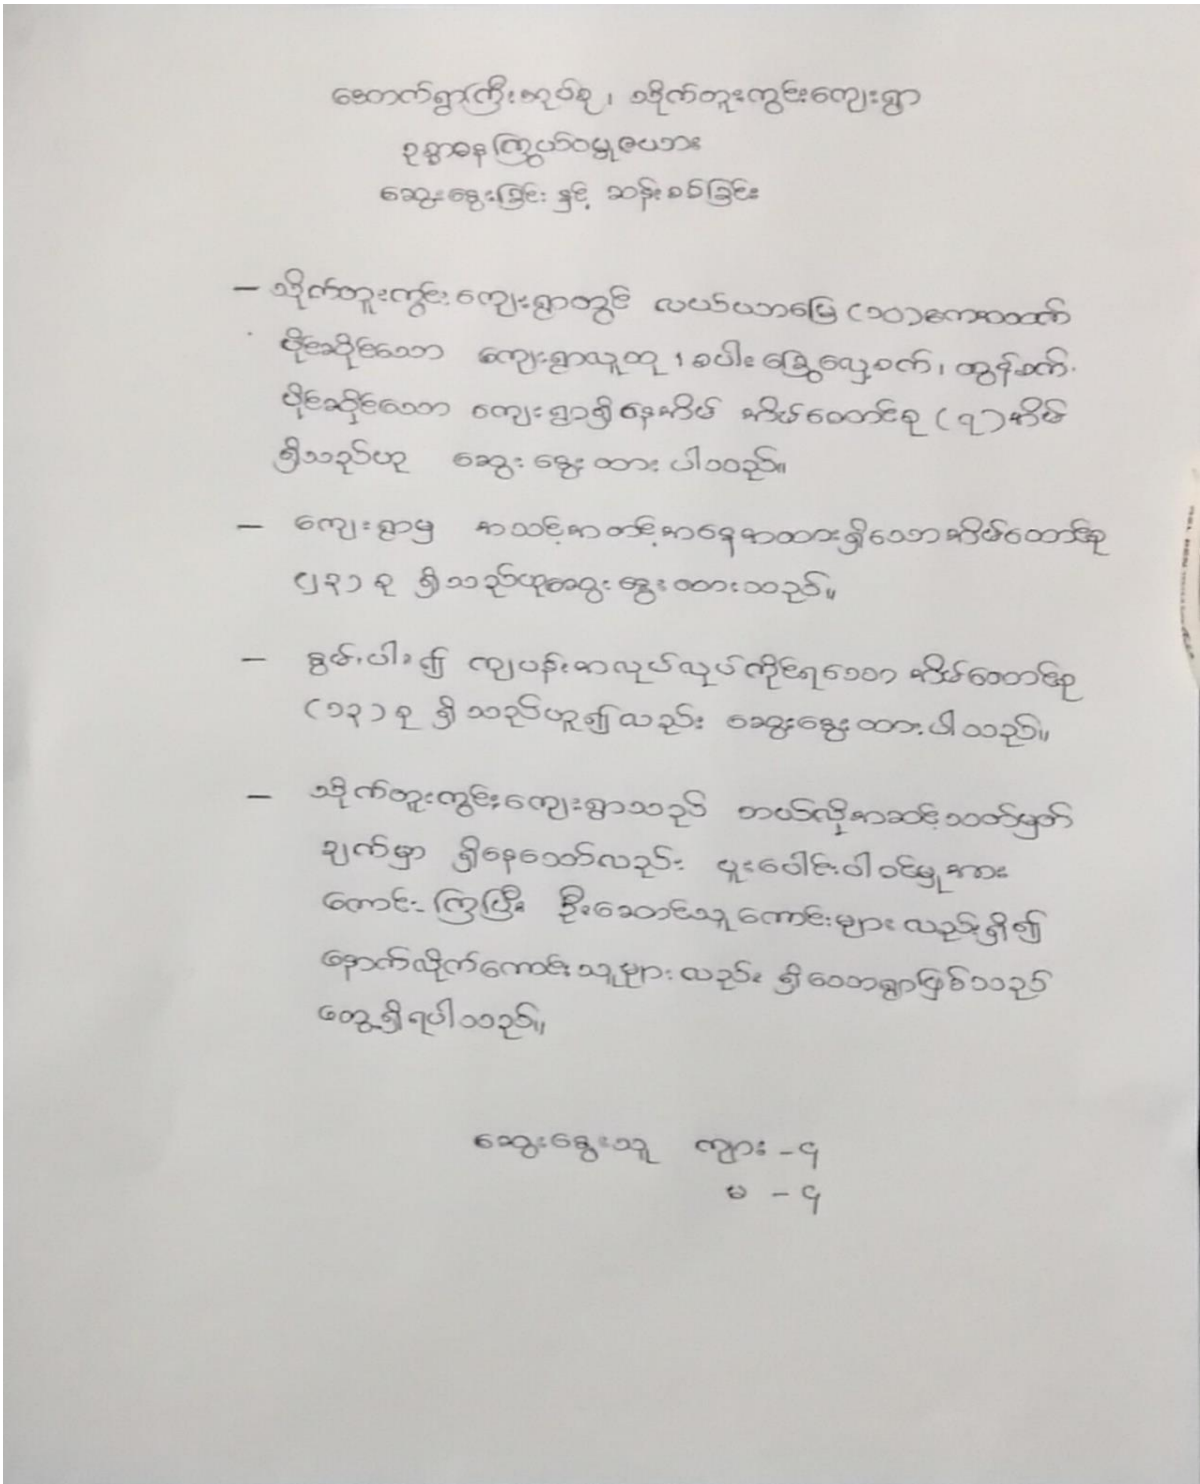 တောက်ရွာကြီးအုပ်စု၊ သိုက်တူးကွင်းကျေးရွာ
ဥစ္စာဓနကြွယ်ဝမှုဇယား
ဆွေးနွေးခြင်း နှင့် ဆန်းစစ်ခြင်း
– သိုက်တူးကွင်းကျေးရွာတွင် လယ်ယာမြေ (၁၀)ဧကအထက်
ပိုင်ဆိုင်သော ကျေးရွာလူထု ၊ စပါးခြွေလှေ့စက်၊ ထွန်စက်
ပိုင်ဆိုင်သော ကျေးရွာရှိနေအိမ် အိမ်ထောင်စု (၇)အိမ်
ရှိသည်ဟု ဆွေးနွေးထားပါသည်။
– ကျေးရွာမှ အသင့်အတင့်အနေအထားရှိသောအိမ်ထောင်စု
(၂၃)စု ရှိသည်ဟုဆွေးနွေးထားသည်။
– နွမ်းပါး၍ ကျပန်းအလုပ်လုပ်ကိုင်ရသော အိမ်ထောင်စု
(၁၃)စု ရှိသည်ဟူ၍လည်း ဆွေးနွေးထားပါသည်။
– သိုက်တူးကွင်းကျေးရွာသည် ဘယ်လိုအဆင့်သတ်မှတ်
ချက်မှာ ရှိနေသော်လည်း ပူးပေါင်းပါဝင်မှုအား
ကောင်းကြပြီး ဦးဆောင်သူကောင်းများလည်းရှိ၍
နောက်လိုက်ကောင်းသူများလည်း ရှိသောရွာဖြစ်သည်
တွေ့ရှိရပါသည်။
ဆွေးနွေးသူ ကျား – ၄
မ – ၄